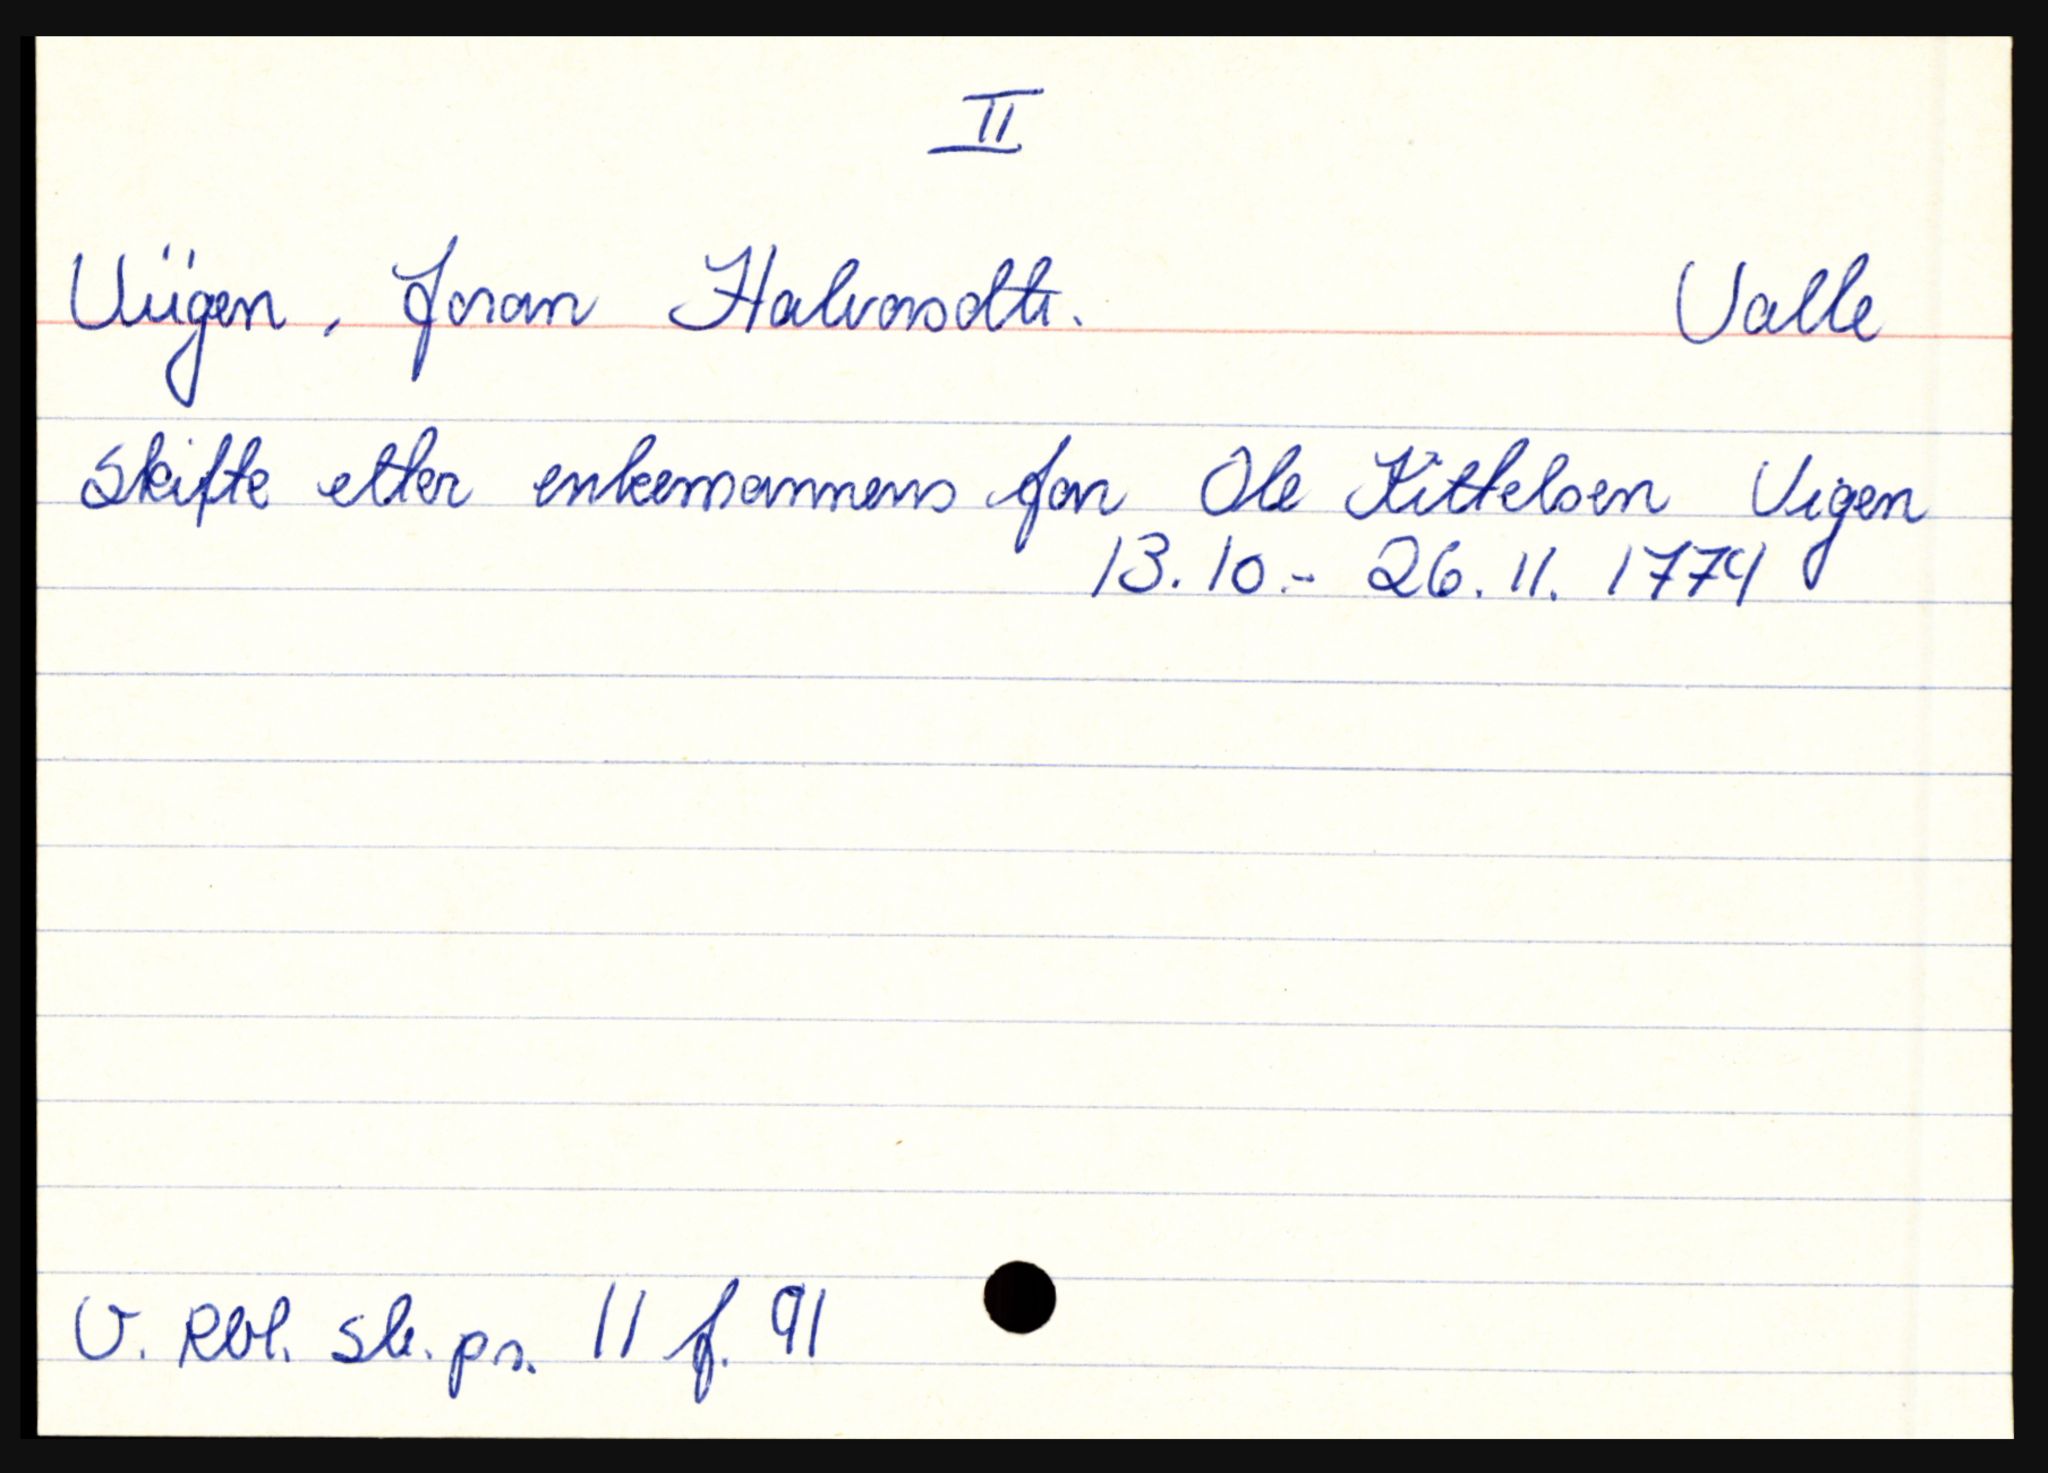 II
Viigen, Joran Halvorsdtr. Valle
Skifte etter enkemannens far Ole Kittelsen Vigen
13.10.- 26.11. 1774
V. Rbl. sk. pr. 11 f. 91